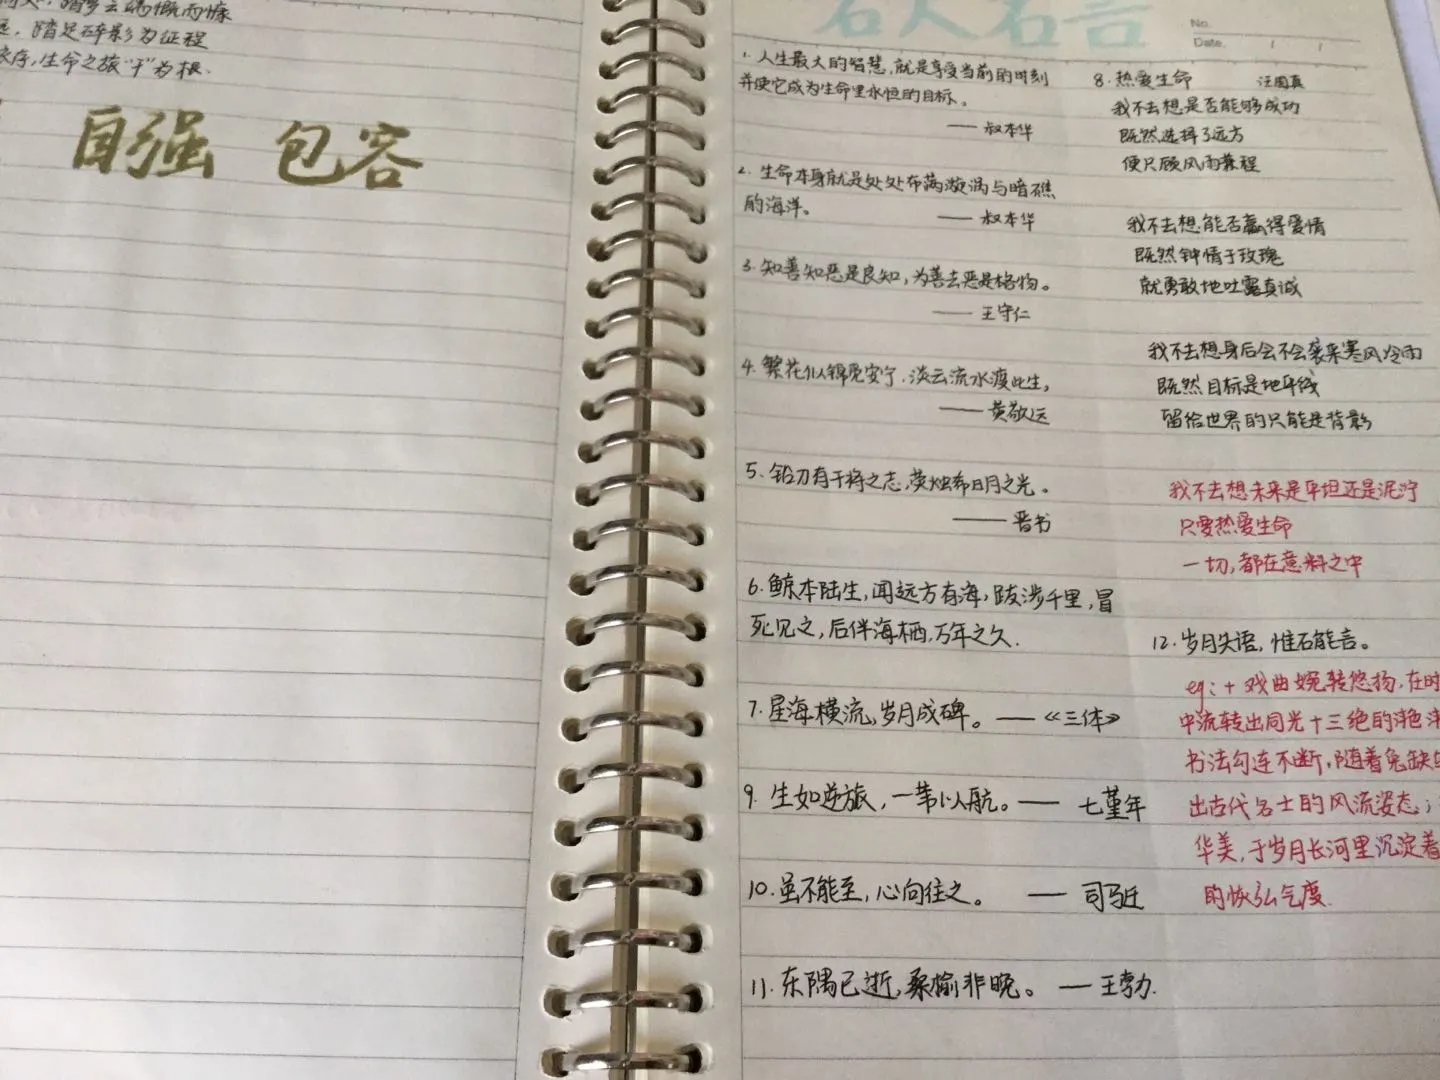 踏足碎影为征程
序,生命之旅“于”为根.
自强 包容
名人名言
No.
Date.
1. 人生最大的智慧,就是享受当前的时刻
并使它成为生命里永恒的目标。
—— 叔本华
2. 生命本身就是处处布满漩涡与暗礁
的海洋。 —— 叔本华
3. 知善知恶是良知,为善去恶是格物。
—— 王守仁
4. 繁花似锦觅安宁,淡云流水渡此生,
—— 黄敬远
5. 铅刀有干将之志,荧烛希日月之光。
—— 晋书
6. 鲸本陆生,闻远方有海,跋涉千里,冒
死见之,后伴海栖,万年之久.
7. 星海横流,岁月成碑。—— 《三体》
9. 生如逆旅,一苇以航。—— 七堇年
10. 虽不能至,心向往之。 —— 司马迁
11. 东隅已逝,桑榆非晚。—— 王勃.
8. 热爱生命 汪国真
我不去想是否能够成功
既然选择了远方
便只顾风雨兼程
我不去想能否赢得爱情
既然钟情于玫瑰
就勇敢地吐露真诚
我不去想身后会不会袭来寒风冷雨
既然目标是地平线
留给世界的只能是背影
我不去想未来是平坦还是泥泞
只要热爱生命
一切,都在意料之中
12. 岁月失语,惟石能言。
eg: + 戏曲婉转悠扬,在时
中流转出同光十三绝的
书法勾连不断,随着兔缺
出古代名士的风流姿态;
华美,于岁月长河里沉淀着
的恢弘气度.